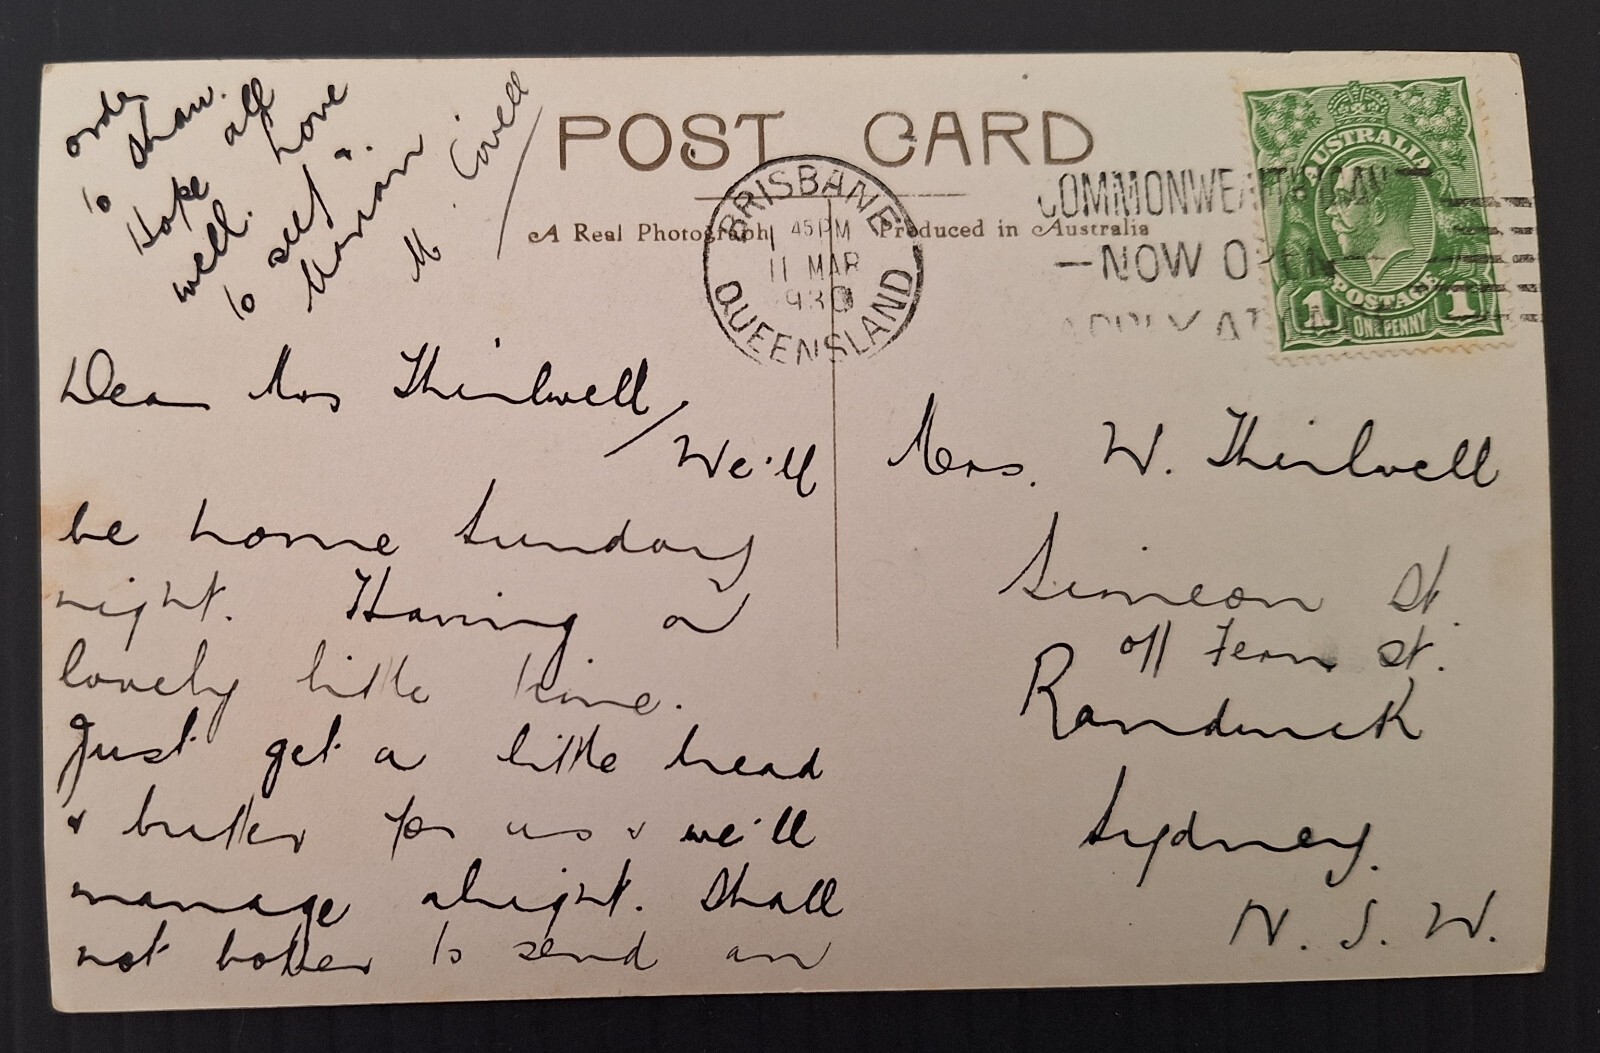 POST CARD
A Real Photograph Produced in Australia
BRISBANE
45 PM
11 MAR
1930
QUEENSLAND
COMMONWEALTH LOAN
— NOW OPEN
APPLY AT
AUSTRALIA
POSTAGE
1 ONE PENNY 1
Dear Mrs Thirlwell/
We'll
be home Sunday
night. Having a
lovely little time.
Just get a little bread
& butter for us & we'll
manage alright. Shall
not bother to send an
order
to Shaw.
Hope all
well. Love
to self &
Marion
M Covell
Mrs. W. Thirlwell
Simeon St.
off Fern St.
Randwick
Sydney.
N. S. W.